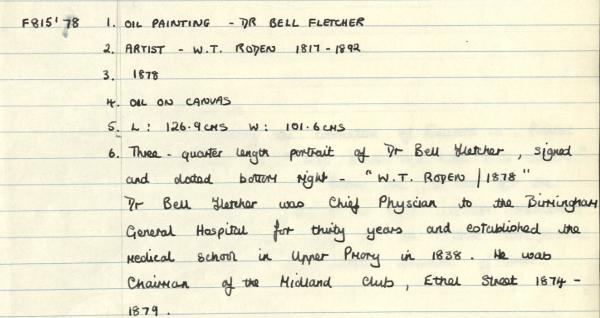 F815'78 1. OIL PAINTING - DR BELL FLETCHER
2. ARTIST - W.T. RODEN 1817-1892
3. 1878
4. OIL ON CANVAS
5. L: 126.9 CMS W: 101.6 CMS
6. Three-quarter length portrait of Dr Bell Fletcher, signed
and dated bottom right - "W.T. RODEN / 1878"
Dr Bell Fletcher was Chief Physcian to the Birmingham
General Hospital for thirty years and established the
Medical School in Upper Priory in 1838. He was
Chairman of the Midland Club, Ethel Street 1874-
1879.